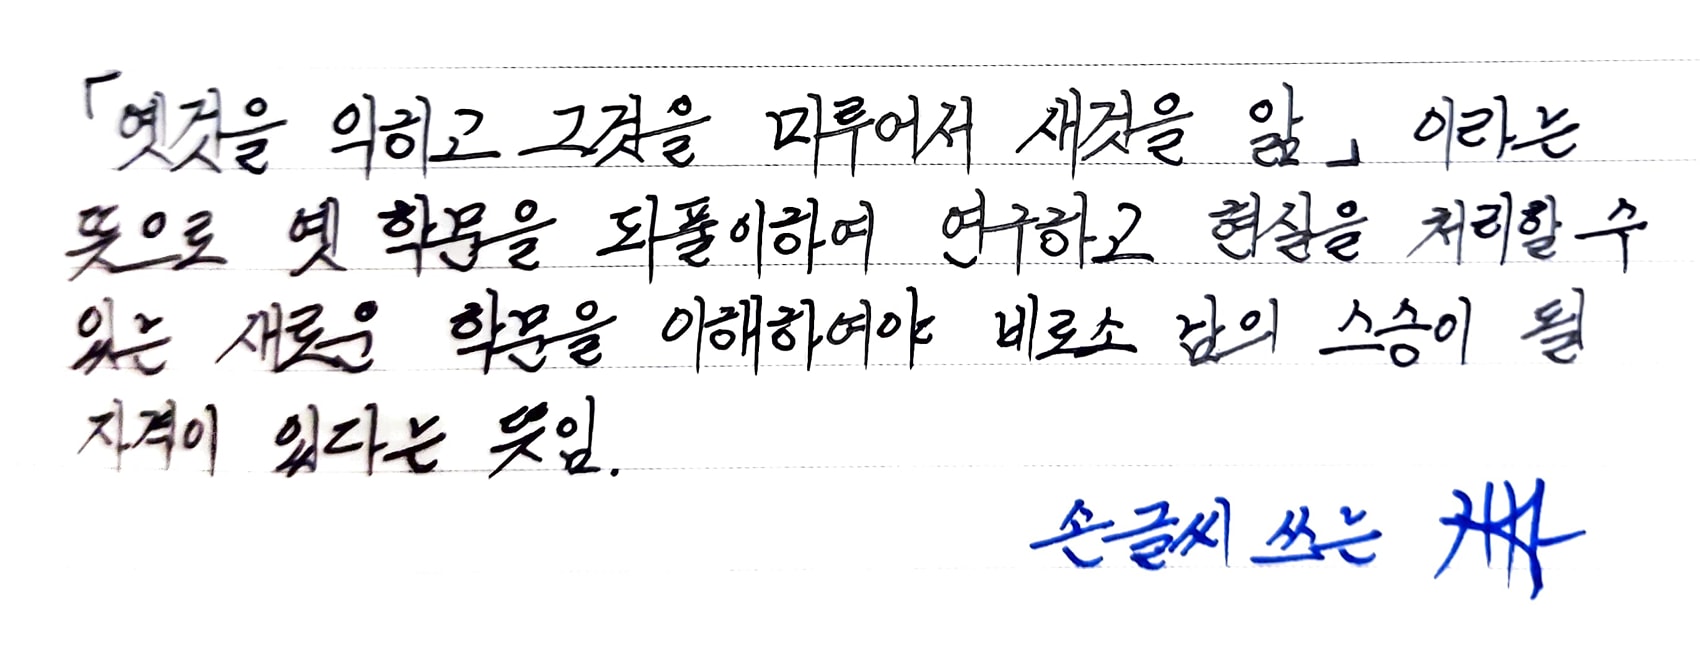 「옛것을 익히고 그것을 미루어서 새것을 앎」 이라는
뜻으로 옛 학문을 되풀이하여 연구하고 현실을 처리할 수
있는 새로운 학문을 이해하여야 비로소 남의 스승이 될
자격이 있다는 뜻임.
손글씨 쓰는